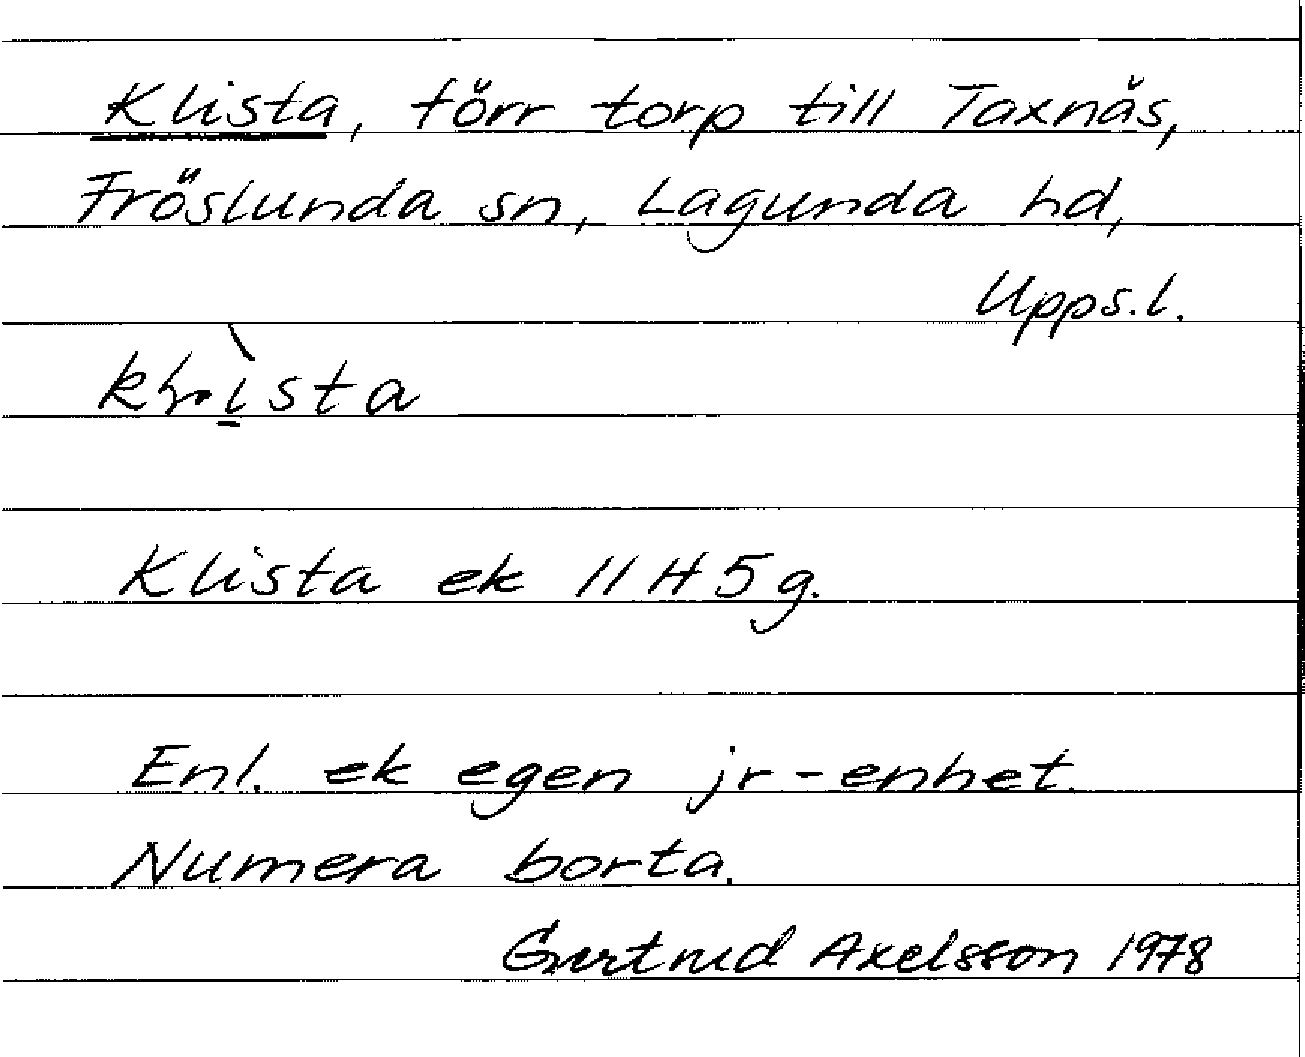 Klista, förr torp till Taxnäs,
Fröslunda sn, Lagunda hd,
Upps.l.
Klista ek 11 H 5 g.
Enl. ek egen jr-enhet.
Numera borta.
Gertrud Axelsson 1978